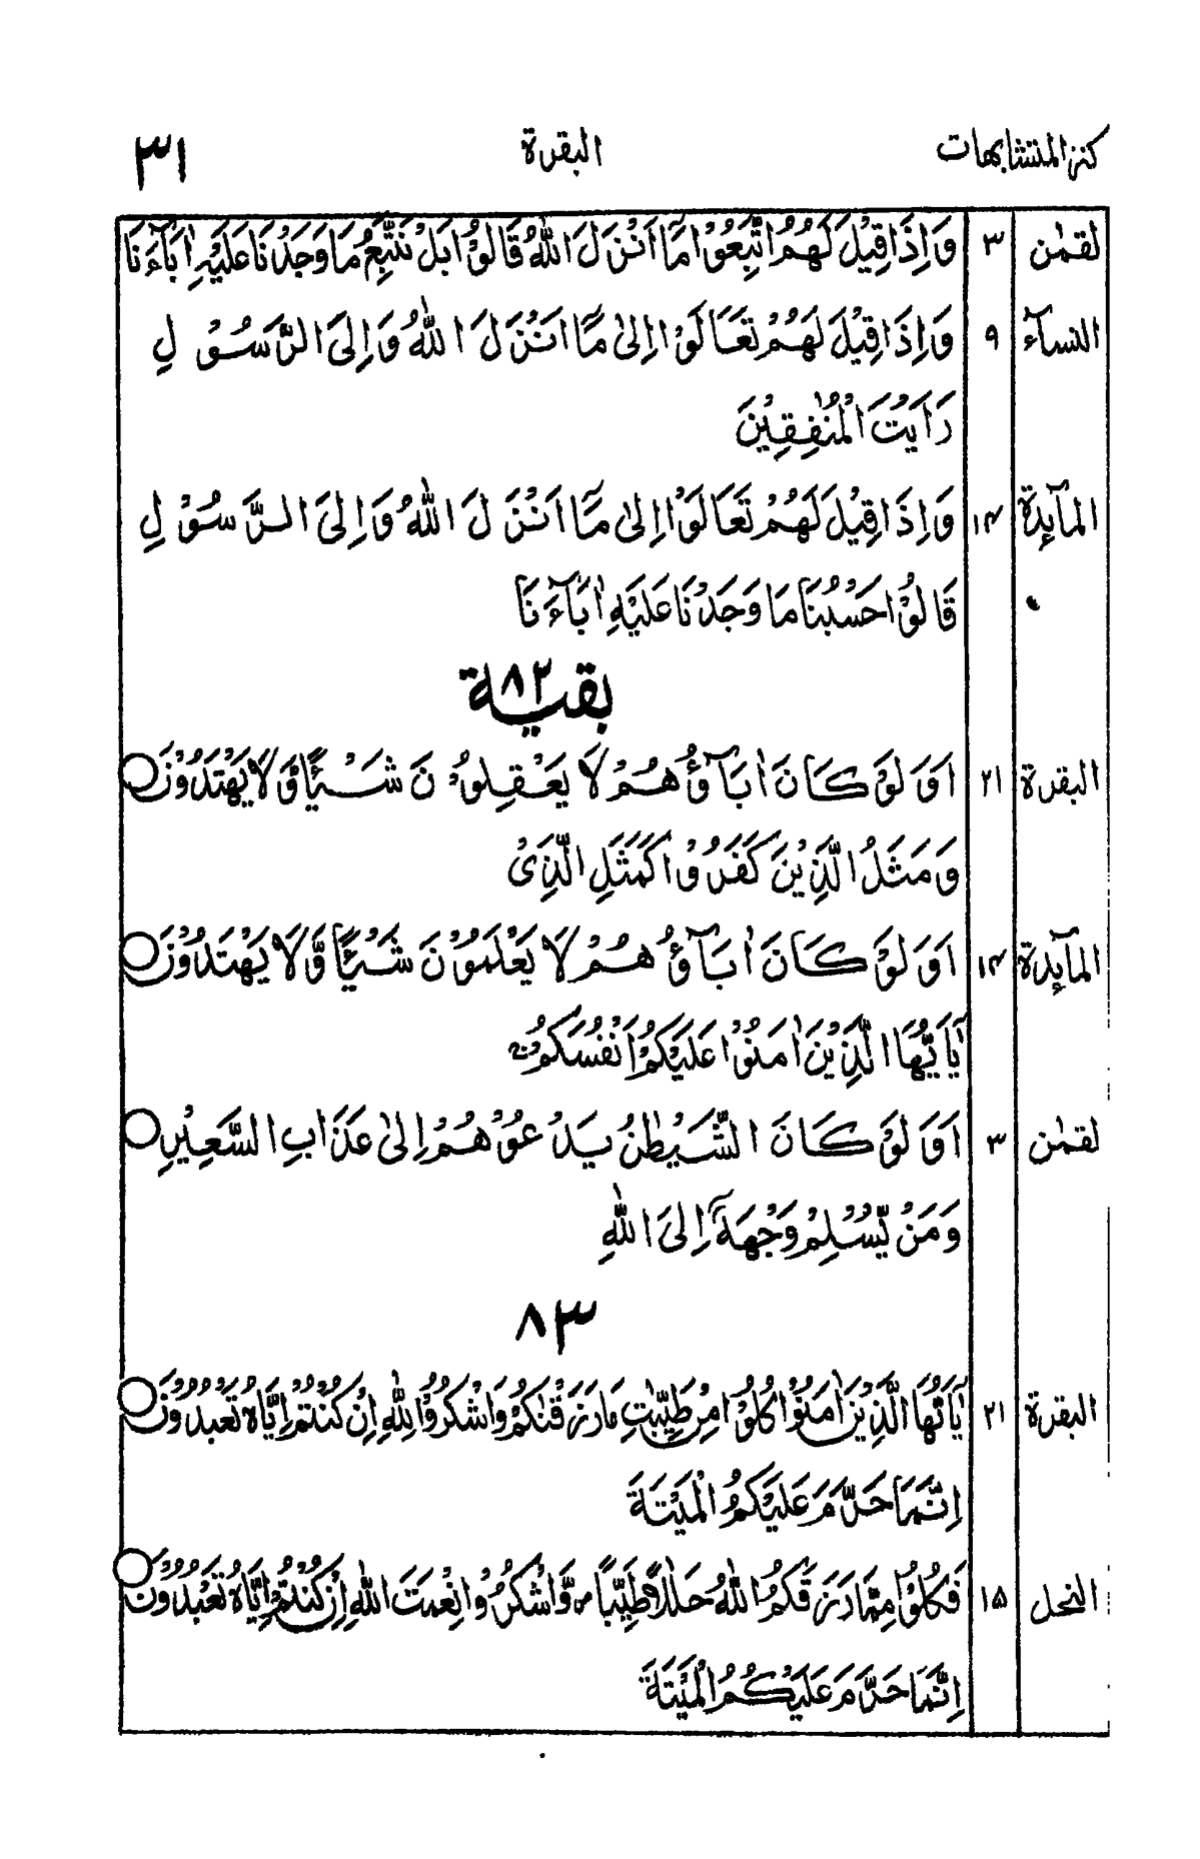 كنز المتشابهات البقرة ٣١
لقمٰن ٣ وَاِذَا قِيْلَ لَهُمُ اتَّبِعُوْا مَآ اَنْزَلَ اللّٰهُ قَالُوْا بَلْ نَتَّبِعُ مَا وَجَدْنَا عَلَيْهِ اٰبَآءَنَا
النسآء ٩ وَاِذَا قِيْلَ لَهُمْ تَعَالَوْا اِلٰى مَآ اَنْزَلَ اللّٰهُ وَاِلَى الرَّسُوْلِ
رَاَيْتَ الْمُنٰفِقِيْنَ
المآيدة ١٤ وَاِذَا قِيْلَ لَهُمْ تَعَالَوْا اِلٰى مَآ اَنْزَلَ اللّٰهُ وَاِلَى الرَّسُوْلِ
قَالُوْا حَسْبُنَا مَا وَجَدْنَا عَلَيْهِ اٰبَآءَنَا
بقية ٨٢
البقرة ٢١ اَوَلَوْ كَانَ اٰبَآؤُهُمْ لَا يَعْقِلُوْنَ شَيْئًا وَّلَا يَهْتَدُوْنَ ○
وَمَثَلُ الَّذِيْنَ كَفَرُوْا كَمَثَلِ الَّذِىْ
المآيدة ١٤ اَوَلَوْ كَانَ اٰبَآؤُهُمْ لَا يَعْلَمُوْنَ شَيْئًا وَّلَا يَهْتَدُوْنَ ○
يٰۤاَيُّهَا الَّذِيْنَ اٰمَنُوْا عَلَيْكُمْ اَنْفُسَكُمْ
لقمٰن ٣ اَوَلَوْ كَانَ الشَّيْطٰنُ يَدْعُوْهُمْ اِلٰى عَذَابِ السَّعِيْرِ ○
وَمَنْ يُّسْلِمْ وَجْهَهٗٓ اِلَى اللّٰهِ
٨٣
البقرة ٢١ يٰۤاَيُّهَا الَّذِيْنَ اٰمَنُوْا كُلُوْا مِنْ طَيِّبٰتِ مَا رَزَقْنٰكُمْ وَاشْكُرُوْا لِلّٰهِ اِنْ كُنْتُمْ اِيَّاهُ تَعْبُدُوْنَ ○
اِنَّمَا حَرَّمَ عَلَيْكُمُ الْمَيْتَةَ
النحل ١٥ فَكُلُوْا مِمَّا رَزَقَكُمُ اللّٰهُ حَلٰلًا طَيِّبًا وَّاشْكُرُوْا نِعْمَتَ اللّٰهِ اِنْ كُنْتُمْ اِيَّاهُ تَعْبُدُوْنَ ○
اِنَّمَا حَرَّمَ عَلَيْكُمُ الْمَيْتَةَ